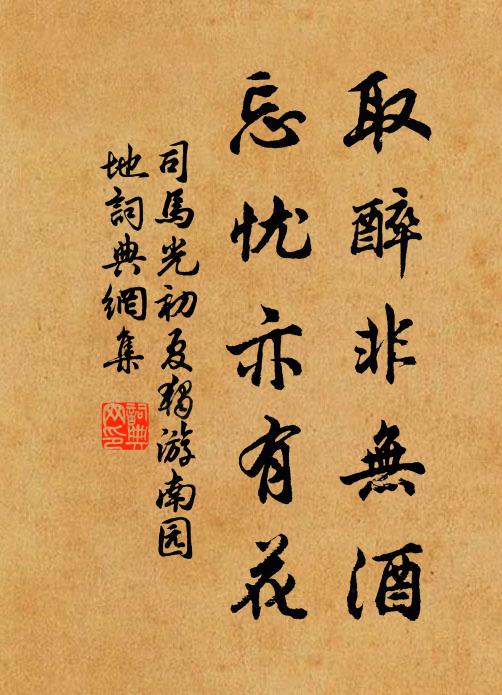 取醉非無酒
忘忧亦有花
司馬光初夏獨游南园
地詞典網集
詞典
网印